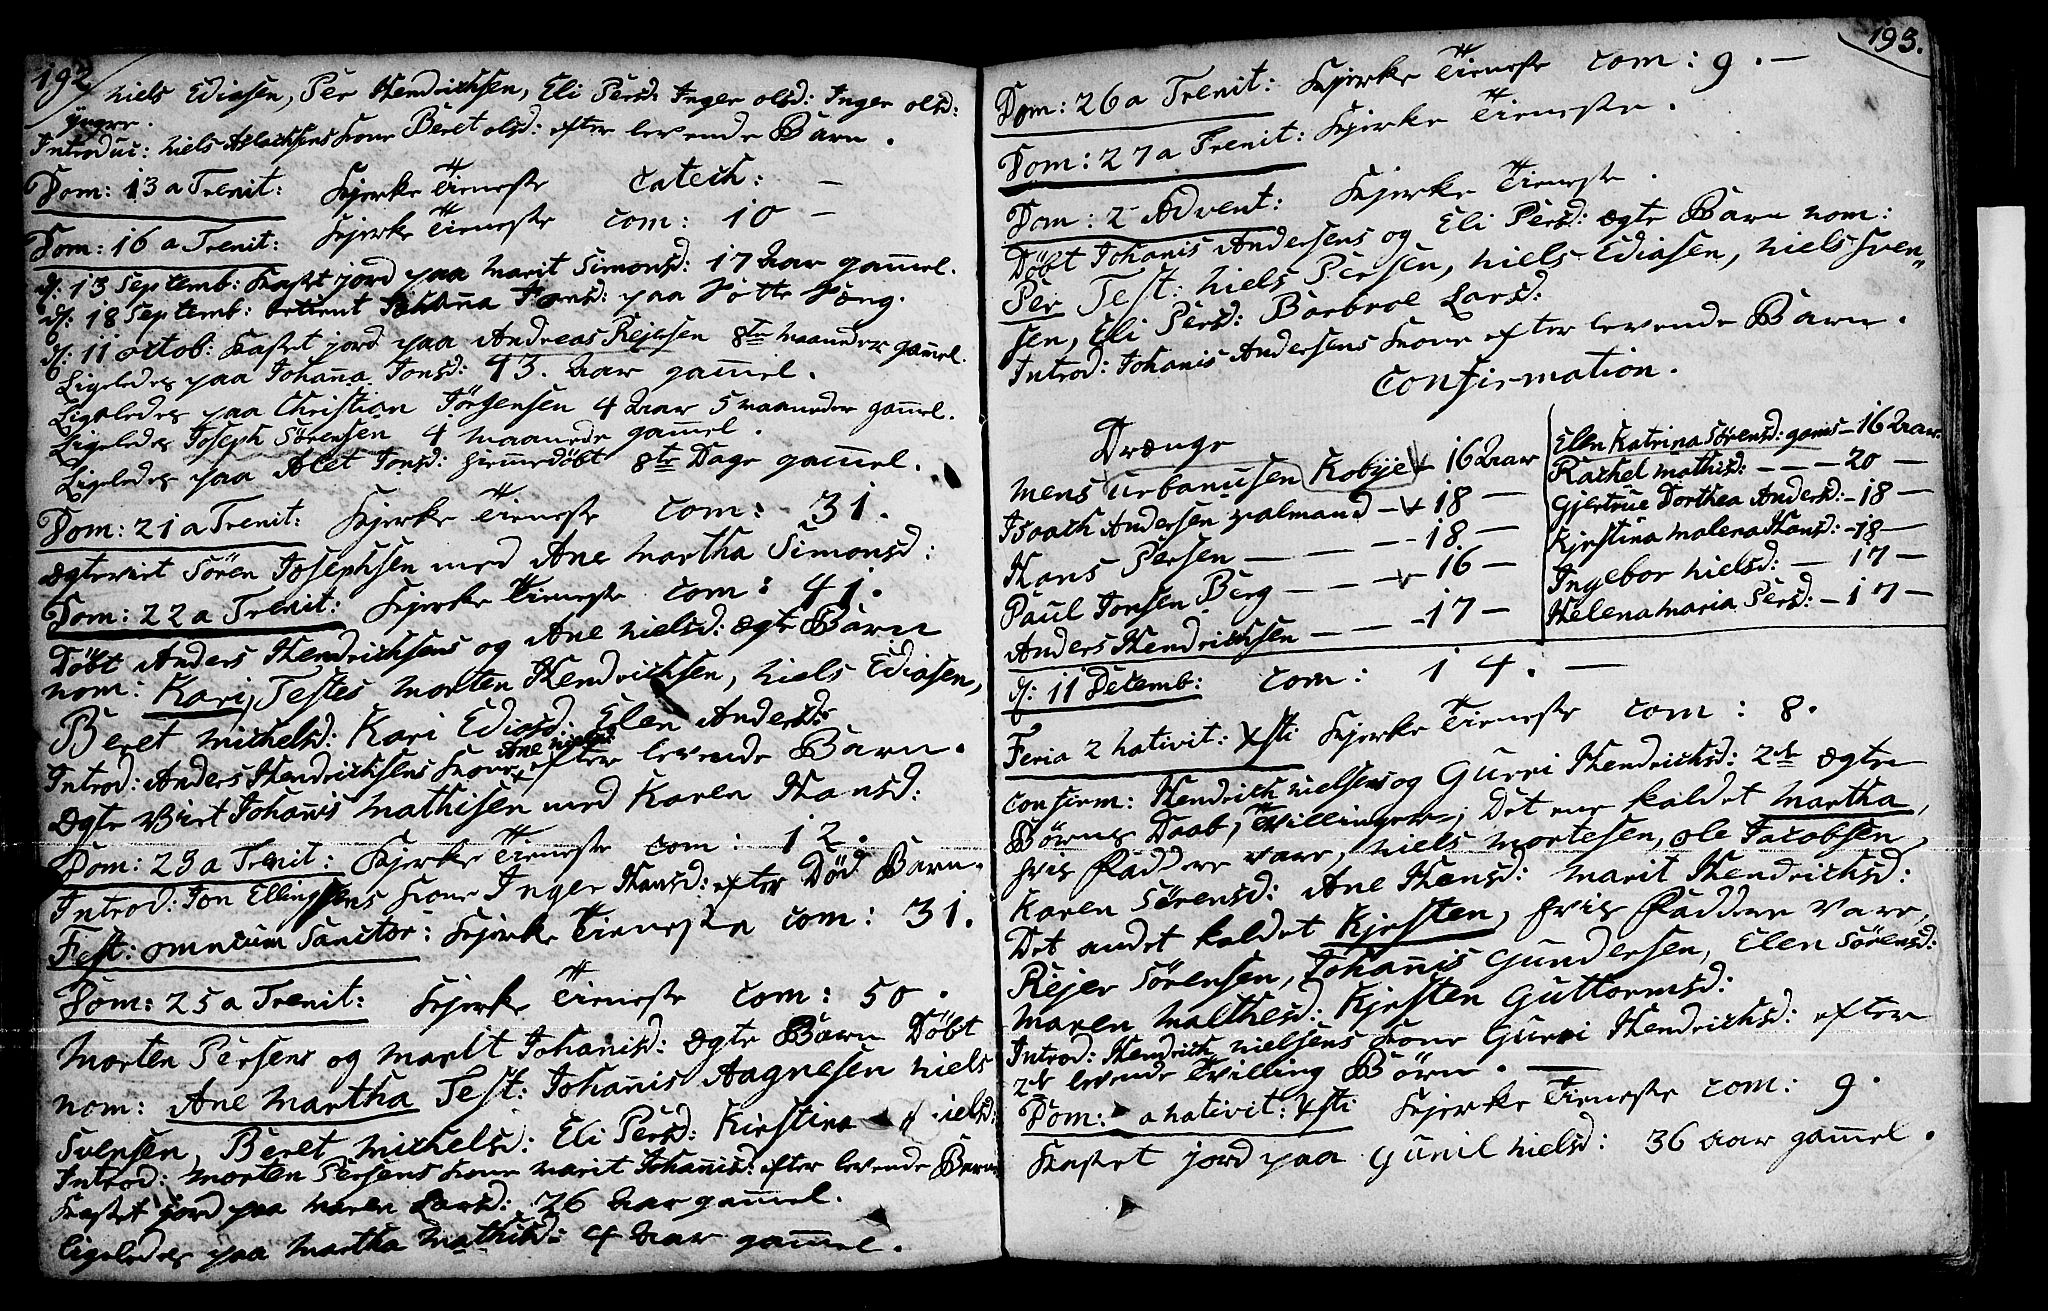 192
Niels Ediasen, Per Hendrichsen, Eli Persd: Inger olsd: Inger olsd:
ÿngre.
Introduc: Niels Aslachsens Kone Beret olsd: efter levende Barn.
Dom: 13 a Trenit: Kjerke Tieneste Catech: —
Dom: 16 a Trenit: Kjerke Tieneste Com: 10 —
d: 13 Septemb: Kastet jord paa Marit Simonsd: 17 Aar gam̄el.
d: 18 Septemb: Johan̄a Jonsd: paa Sotte Sæng.
d: 11 octob: Kastet jord paa Andreas Rejersen 8te Maaneder gam̄el.
Ligeledes paa Johan̄a Jonsd: 43. Aar gam̄el.
Ligeledes paa Christian Jörgensen 4 Aar 5 Maaneder gam̄el.
Ligeledes Joseph Sörensen 4 Maanede gam̄el.
Ligeledes paa Alet Jonsd: Hiemmedöbt 8te Dage gam̄el.
Dom: 21 a Trenit: Kjerke Tieneste Com: 31.
Ægteviet Sören Josephsen med Ane Martha Simonsd:
Dom: 22 a Trenit: Kjerke Tieneste Com: 41.
Döbt Anders Hendrichsens og Ane Nielsd: Ægte Barn
nom: Kari, Testes Morten Hendrichsen, Niels Ediasen,
Beret Michelsd: Kari Ediasd: Elen Andersd:
Ane Nielsd:
Introd: Anders Hendrichsens Kone efter levende Barn.
Ægte Viet Johan̄is Mathisen med Karen Hansd:
Dom: 23 a Trenit: Kjerke Tieneste Com: 12.
Introd: Jon Ellingsens Kone Inger Hansd: efter Död Barn.
Fest: omnium Sanctor: Kjerke Tieneste Com: 31.
Dom: 25 a Trenit: Kjerke Tieneste Com: 50.
Morten Persens og Marit Johan̄isd: Ægte Barn Döbt
nom: Ane Martha Test: Johan̄is Aagnesen Niels
Svensen, Beret Michelsd: Eli Persd: Kirstina Nielsd:
Introd: Morten Persens Kone Marit Johan̄isd: efter levende Barn
Kastet jord paa Maren Larsd: 76 Aar gam̄el.
Ligeledes paa Martha Mathisd: 4 Aar gam̄el.
193.
Dom: 26 a Trenit: Kjerke Tieneste Com: 9. —
Dom: 27 a Trenit: Kjerke Tieneste.
Dom: 2 Advent: Kjerke Tieneste.
Döbt Johanis Andersens og Eli Persd: Ægte Barn nom:
Per Test: Niels Persen, Niels Ediasen, Niels Sven„
sen, Eli Persd: Barbroe Larsd:
Introd: Johanis Andersens Kone efter levende Barn.
Confirmation.
Drænge
Mens Urbanusen Kobÿe 16 Aar
Isaach Andersen Valmand — 18 —
Hans Persen — — — 18 —
Paul Jonsen Berg — — — 16 —
Anders Hendrichsen — — — 17 —
Elen Katrina Sörensd: — 16 Aar
Rachel Mathisd: — — — 20 —
Gjertrue Dorthea Andersd: — 18 —
Kjestina Malena Hansd: — 18 —
Ingebor Nielsd: — 17 —
Helena Maria Persd: — 17 —
d: 11 Decemb: Com: 14. —
Feria 2 Nativit: Xsti Kjerke Tieneste Com: 8.
Confirm: Hendrich Nielsens og Gurri Hendrichsd: 2de Ægte
Börns Daab, Tvillinger; Det ene kaldet Martha,
hvis Faddere vare, Niels Mortesen, ole Jacobsen,
Karen Sörensd: Ane Hansd: Marit Hendrichsd:
Det andet kaldet Kjesten, hvis Faddere vare,
Rejer Sörensen, Johan̄is Gundersen, Elen Sörensd:
Maren Malthesd: Kjesten Guttormsd:
Introd: Hendrich Nielsens Kone Gurri Hendrichsd: efter
2de levende Tvilling Börn. —
Dom: a Nativit: Xsti Kjerke Tieneste Com: 9.
Kastet jord paa Gunil Nielsd: 36 Aar gam̄el.